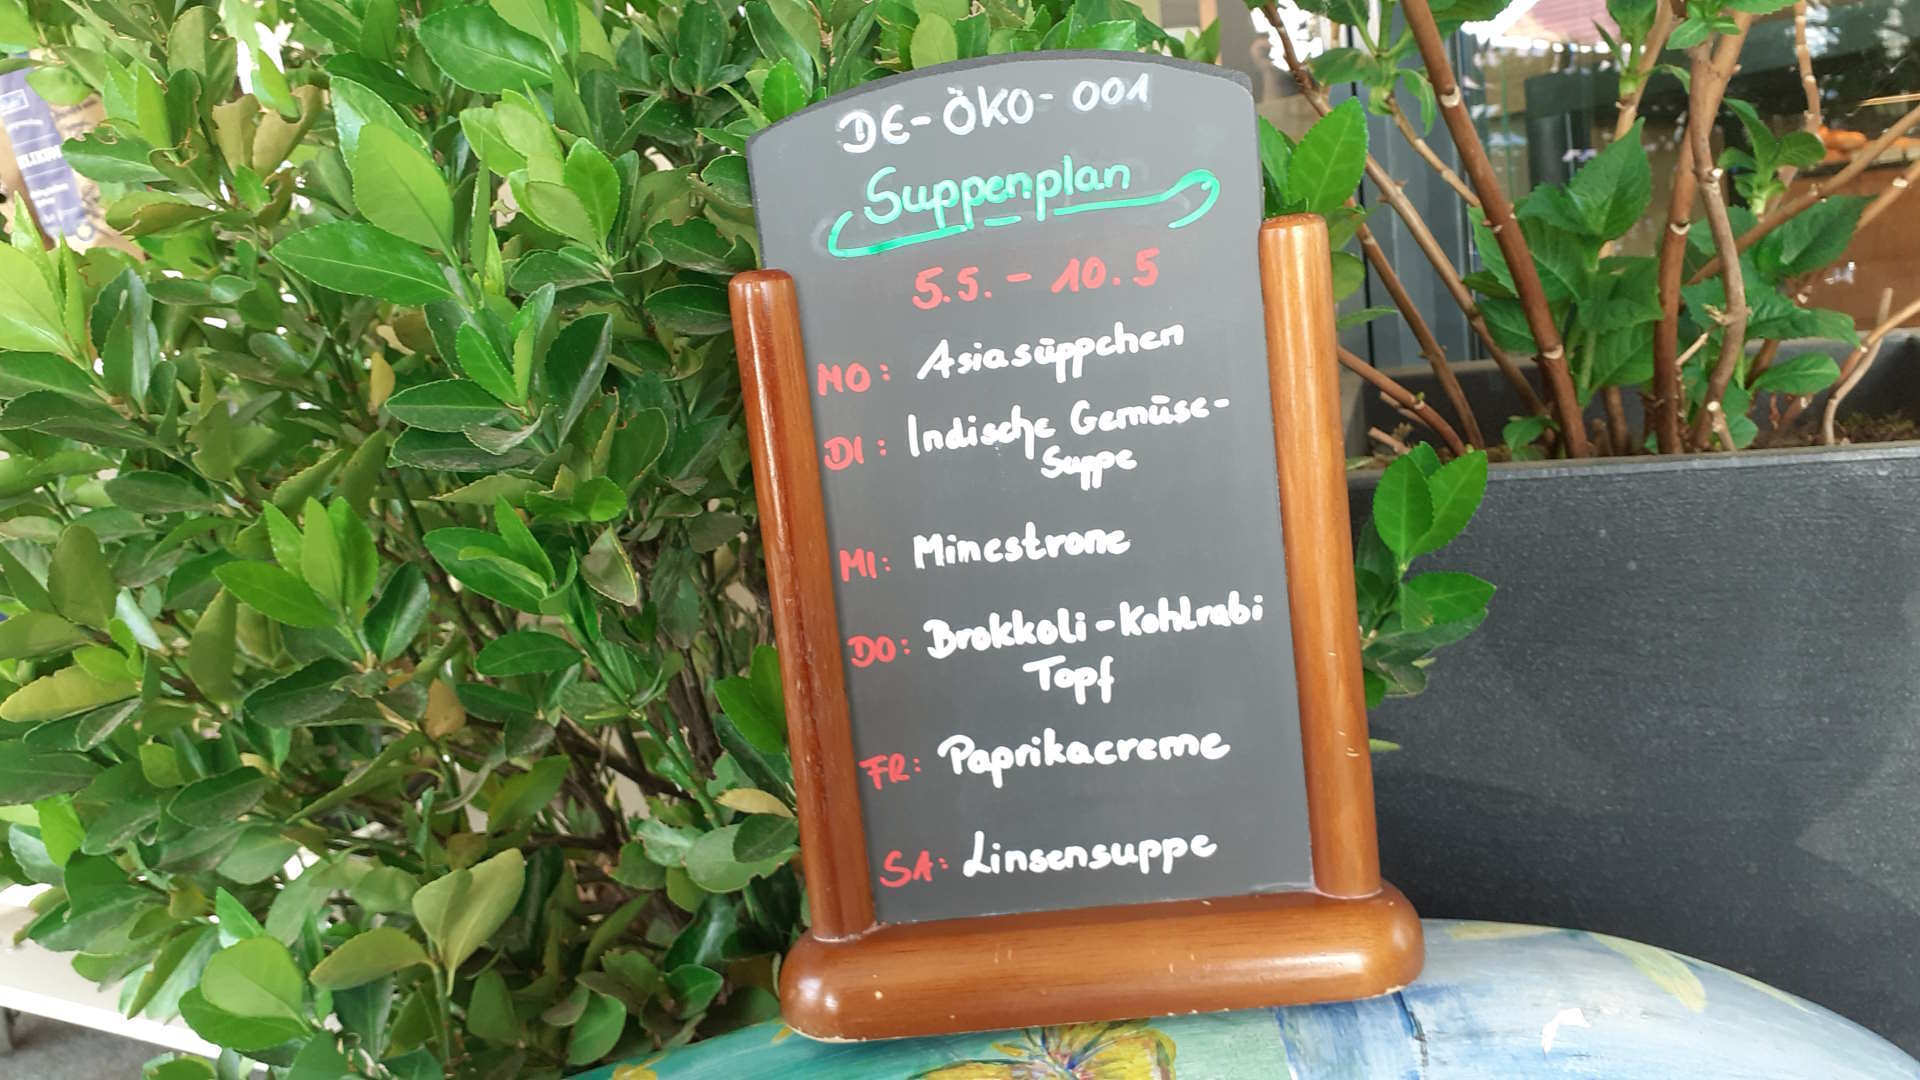 DE-ÖKO-001
Suppenplan
5.5. - 10.5
MO: Asiasüppchen
DI: Indische Gemüse-
Suppe
MI: Minestrone
DO: Brokkoli-Kohlrabi
Topf
FR: Paprikacreme
SA: Linsensuppe